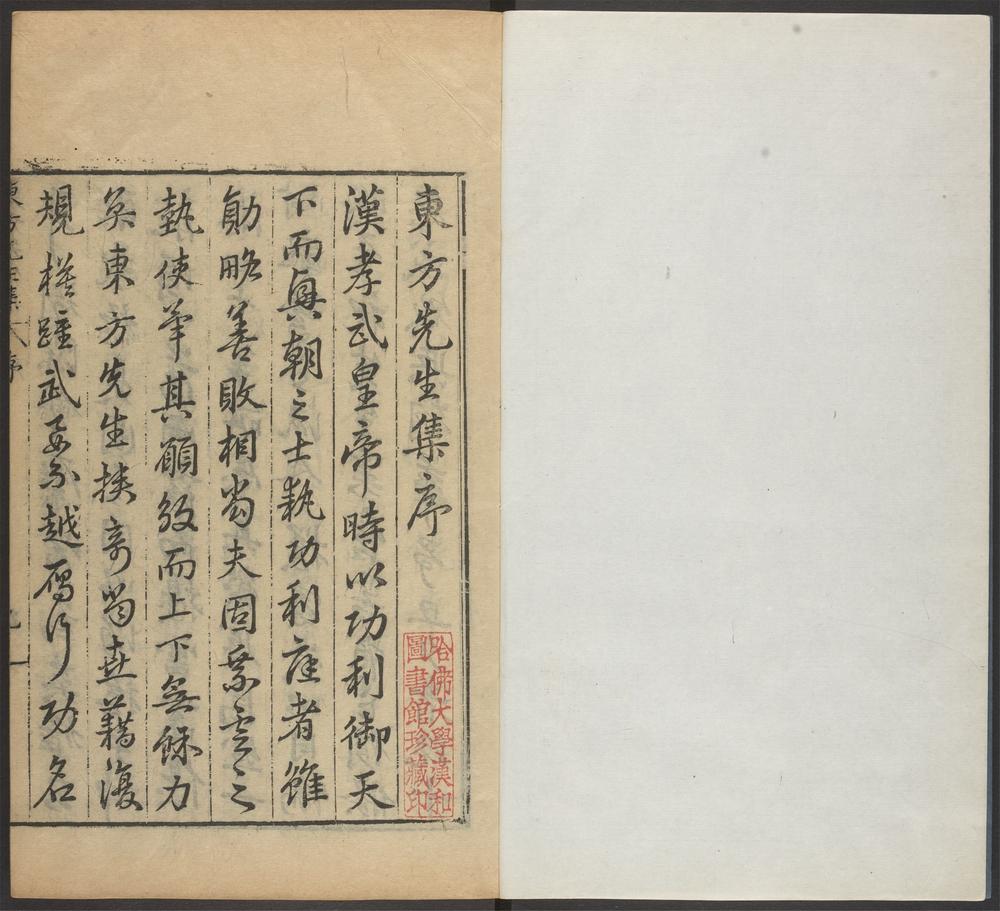 東方先生集序
漢孝武皇帝時以功利御天
下而朝之士執功利應者雖
勛略善敗相當夫固乘雲之
埶使其願效而上下無餘力
矣東方先生挾奇當世藉復
規模踵武要亦越雁行功名
東方先生集 序 一
哈佛大學漢和
圖書館珍藏印